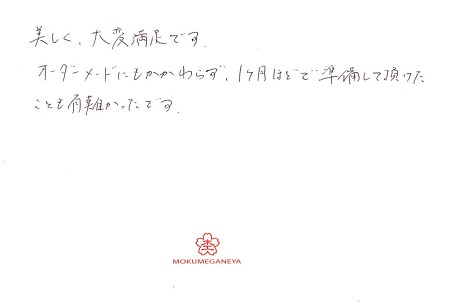 美しく、大変満足です.
オーダーメードにもかかわらず、1ヶ月ほどで準備して頂けた
ことも有難かったです.
MOKUMEGANEYA